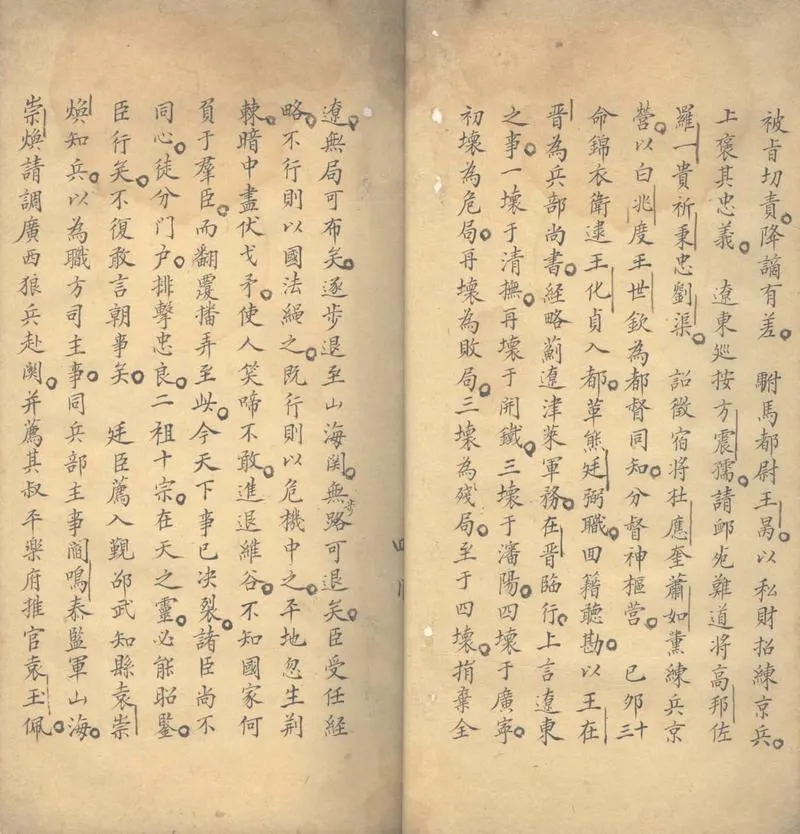 被旨切責降謫有差　駙馬都尉王昺以私財招練京兵
上褒其忠義　遼東廵按方震孺請邺死難道將高邦佐
羅一貴祈秉忠劉渠　詔徵宿將杜應奎蕭如薰練兵京
營以白兆度王世欽為都督同知分督神樞營　已夘十三
命錦衣衛逮王化貞入都革熊廷弼職囬籍聽勘以王在
晋為兵部尚書經略薊遼津萊軍務在晋臨行上言遼東
之事一壞于清撫再壞于開鐵三壞于瀋陽四壞于廣寧
初壞為危局再壞為敗局三壞為殘局至于四壞捐棄全
遼無局可布矣逐步退至山海関無路可退矣臣受任経
略不行則以國法繩之既行則以危機中之平地忽生荆
棘暗中盡伏戈矛使人笑啼不敢進退維谷不知國家何
負于羣臣而翻覆播弄至此今天下事已决裂諸臣尚不
同心徒分門户排擊忠良二祖十宗在天之靈必能昭鑒
臣行矣不復敢言朝事矣　廷臣薦入覲邵武知縣袁崇
煥知兵以為職方司主事同兵部主事閻鳴泰監軍山海
崇煥請調廣西狼兵赴関并薦其叔平樂府推官袁玉佩